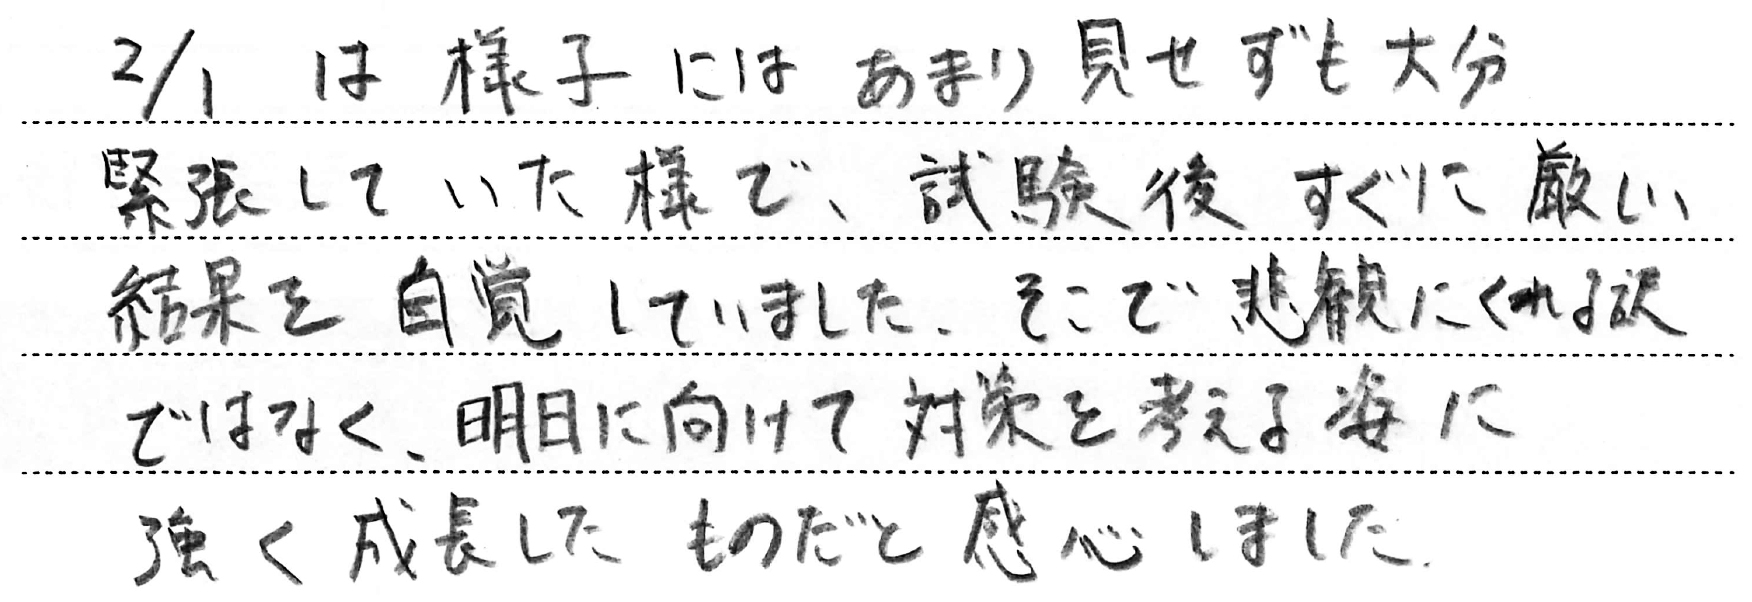 2/1 は様子にはあまり見せずも大分
緊張していた様で、試験後すぐに厳しい
結果を自覚していました。そこで悲観にくれる訳
ではなく、明日に向けて対策を考える姿に
強く成長したものだと感心しました。